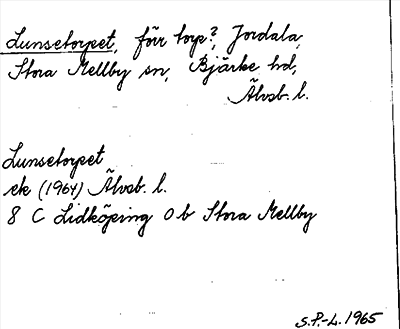 Lunsetorpet, förr torp?, Jordala,
Stora Mellby sn, Bjärke hd,
Älvsb. l.
Lunsetorpet
ek (1964) Älvsb. l.
8 C Lidköping 0 b Stora Mellby
S.P.-L. 1965